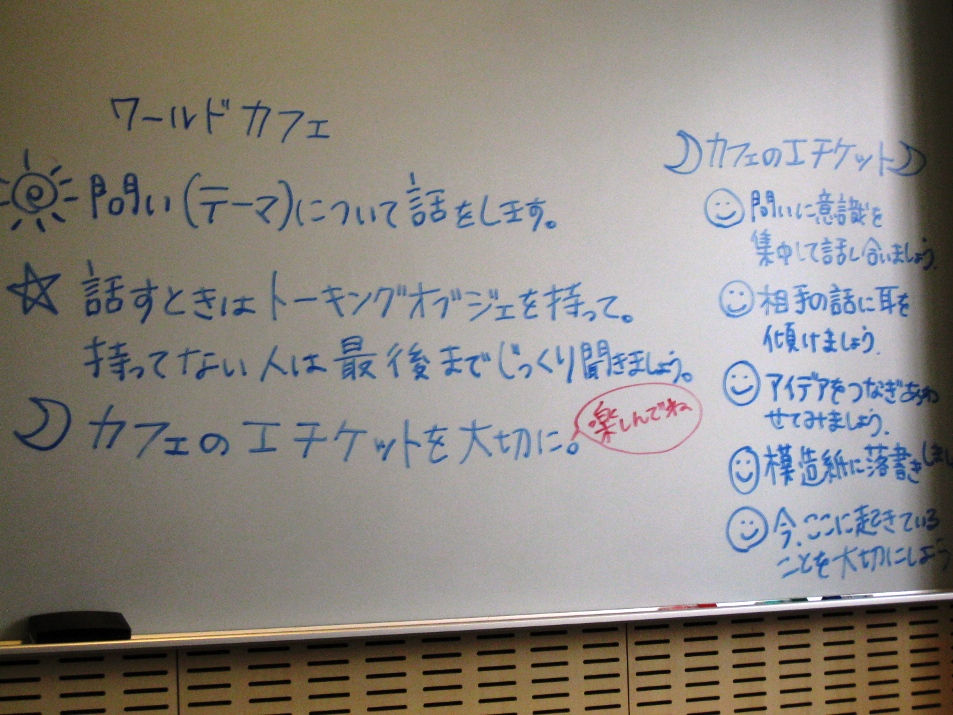 ワールドカフェ
問い(テーマ)について話をします。
話すときはトーキングオブジェを持って。
持ってない人は最後までじっくり聞きましょう。
カフェのエチケットを大切に。
楽しんでね
カフェのエチケット
問いに意識を
集中して話し合いましょう.
相手の話に耳を
傾けましょう.
アイデアをつなぎあわ
せてみましょう.
模造紙に落書きしまし
今、ここに起きている
ことを大切にしよう